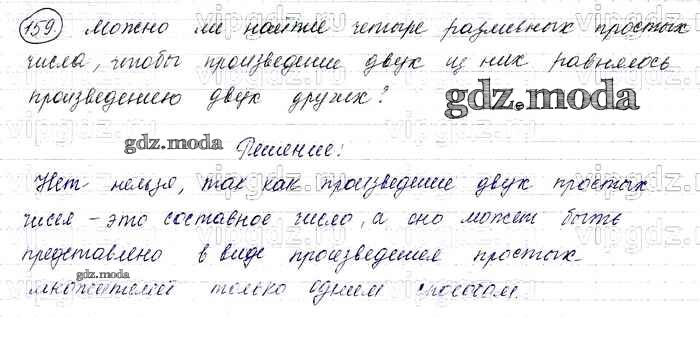 159. Можно ли найти четыре различных простых
числа, чтобы произведение двух из них равнялось
произведению двух других?
gdz.moda
gdz.moda
Решение:
Нет нельзя, так как произведение двух простых
чисел – это составное число, а оно может быть
представлено в виде произведения простых
gdz.moda
множителей только одним способом.